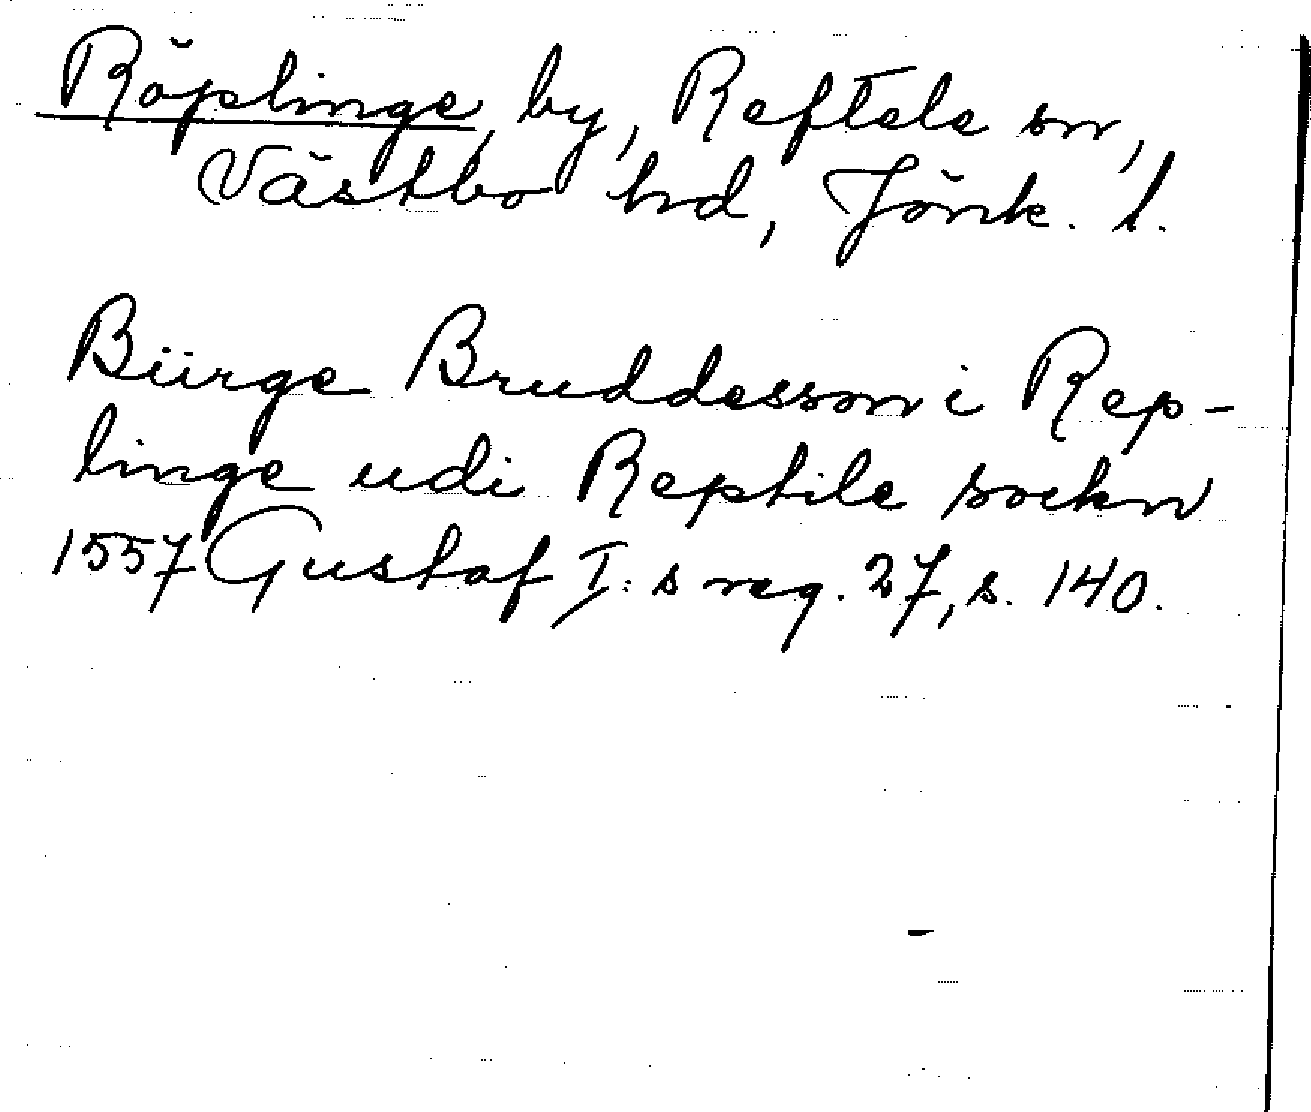 Röplinge, by, Reftele sn,
Västbo hd, Jönk. l.
Biirge Bruddesson i Rep-
linge udi Reptile sockn
1557 Gustaf I:s reg. 27, s. 140.